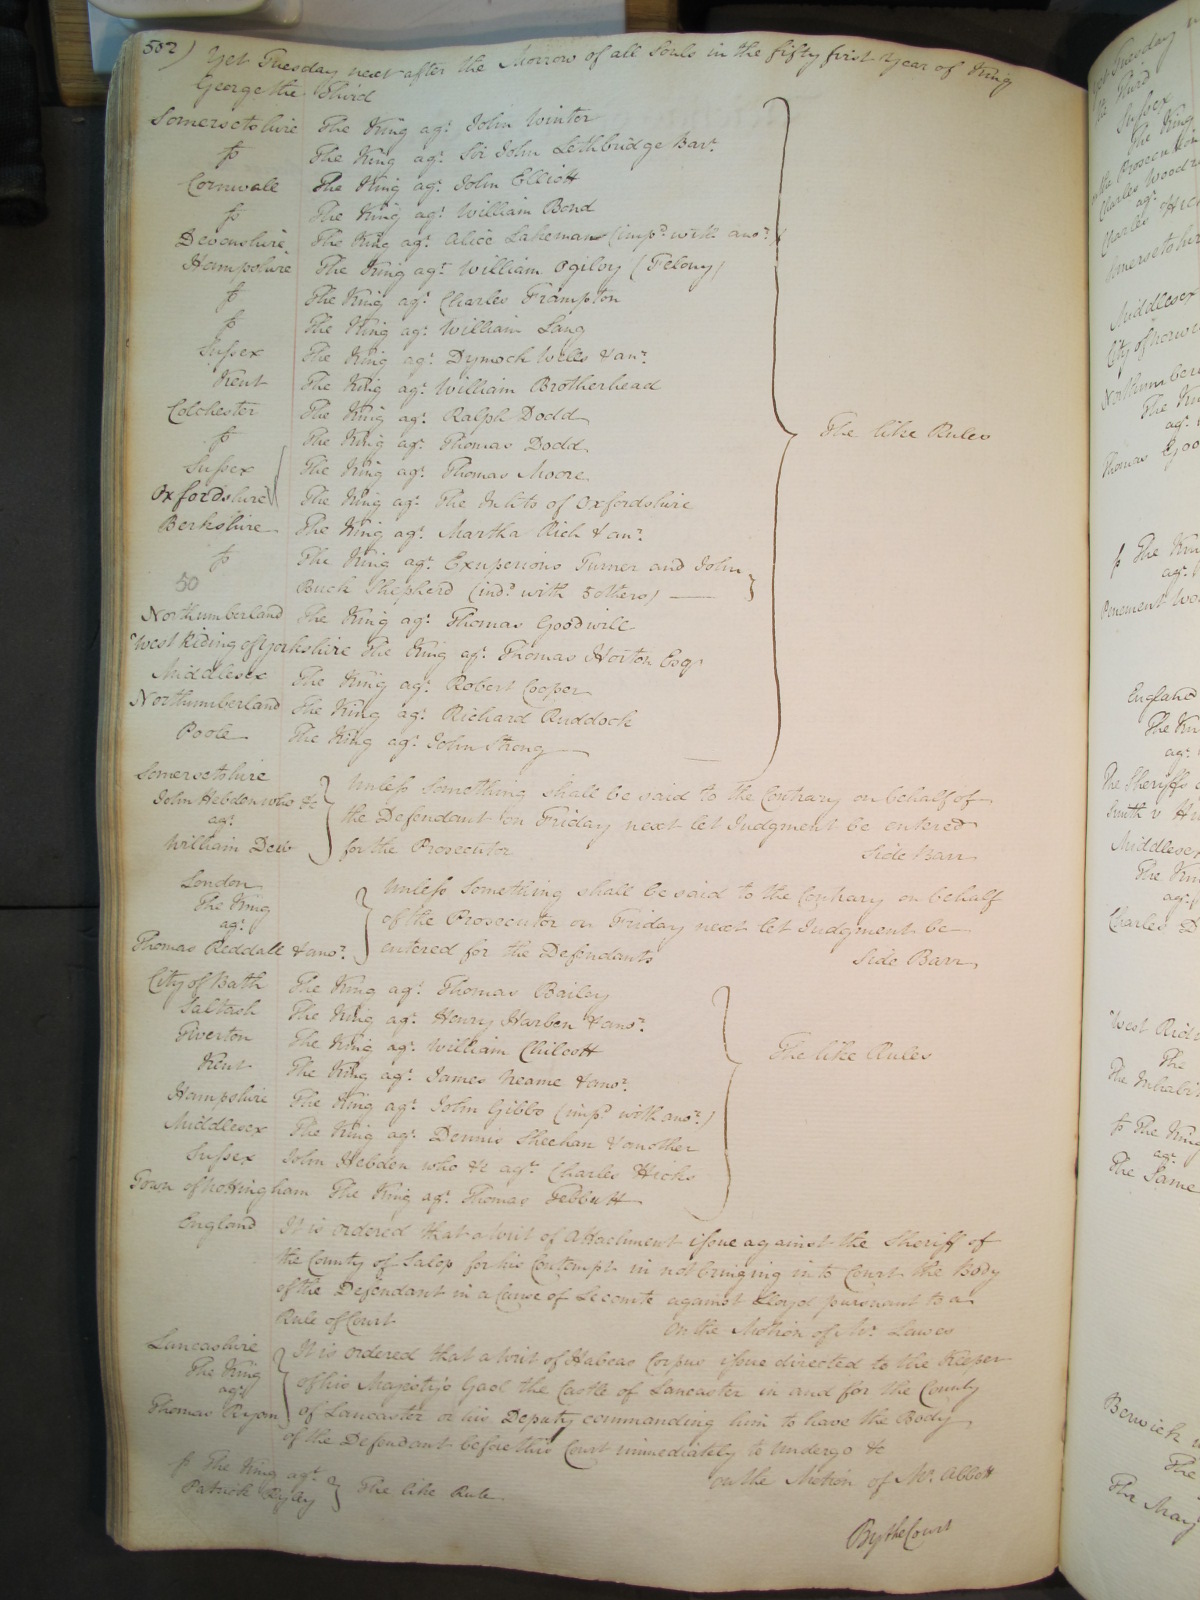 502) Yet Tuesday next after the Morrow of all Souls in the fifty first Year of King
George the Third
Somersetshire The King agt. John Winter
fo The King agt. Sir John Lethbridge Bart.
Cornwall The King agt. John Elliott
fo The King agt. William Bond
Devonshire The King agt. Alice Lakeman (imp.d with anor.)
Hampshire The King agt. William Ogilvy (Felony)
fo The King agt. Charles Frampton
fo The King agt. William Lang
Sussex The King agt. Dymoch Wells & anr.
Kent The King agt. William Brotherhead
Colchester The King agt. Ralph Dodd
The like Rules
fo The King agt. Thomas Dodd
Sussex The King agt. Thomas Moore
Oxfordshire The King agt. The Inhts of Oxfordshire
Berkshire The King agt. Martha Rich & anr.
fo The King agt. Exuperious Turner and John
50 Buck Shepherd (ind.d with 5 others)
Northumberland The King agt. Thomas Goodwill
West Riding of Yorkshire The King agt. Thomas Horton Esqr
Middlesex The King agt. Robert Cooper
Northumberland The King agt. Richard Ruddock
Poole The King agt. John Strong
Somersetshire
John Hebdon who &c
agt.
William Dew
Unless something shall be said to the Contrary on behalf of
the Defendant on Friday next let Judgment be entered
for the Prosecutor Side Barr
London
The King
agt.
Thomas Reddall & anor.
Unless something shall be said to the Contrary on behalf
of the Prosecutor on Friday next let Judgment be
entered for the Defendants Side Barr
City of Bath The King agt. Thomas Bailey
Saltash The King agt. Henry Harben & anor.
Tiverton The King agt. William Chilcott
The like Rules
Kent The King agt. James Neame & anor.
Hampshire The King agt. John Gibbs (imp.d with anor.)
Middlesex The King agt. Dennis Sheehan & another
Sussex John Hebden who &c agt. Charles Hicks
Town of Nottingham The King agt. Thomas Tebbutt
England It is ordered that a Writ of Attachment issue against the Sheriff of
the County of Salop for his Contempt in not bringing into Court the Body
of the Defendant in a Cause of Lecomte against Lloyd pursuant to a
Rule of Court On the Motion of Mr. Lawes
Lancashire
The King
agt.
Thomas Ryan
It is ordered that a Writ of Habeas Corpus issue directed to the Keeper
of his Majesty's Gaol the Castle of Lancaster in and for the County
of Lancaster or his Deputy commanding him to have the Body
of the Defendant before this Court immediately to undergo &c
on the Motion of Mr. Abbott
fo The King agt.
Patrick Ryley
The like Rule
By the Court
Sussex
The King
Charles
agt.
Middlesex
Thomas
agt.
England
agt.
The Sheriffs
Smith v
Middlesex
The
agt.
Charles
West
The
The
fo The King
agt.
The Same
Berwick
The
The